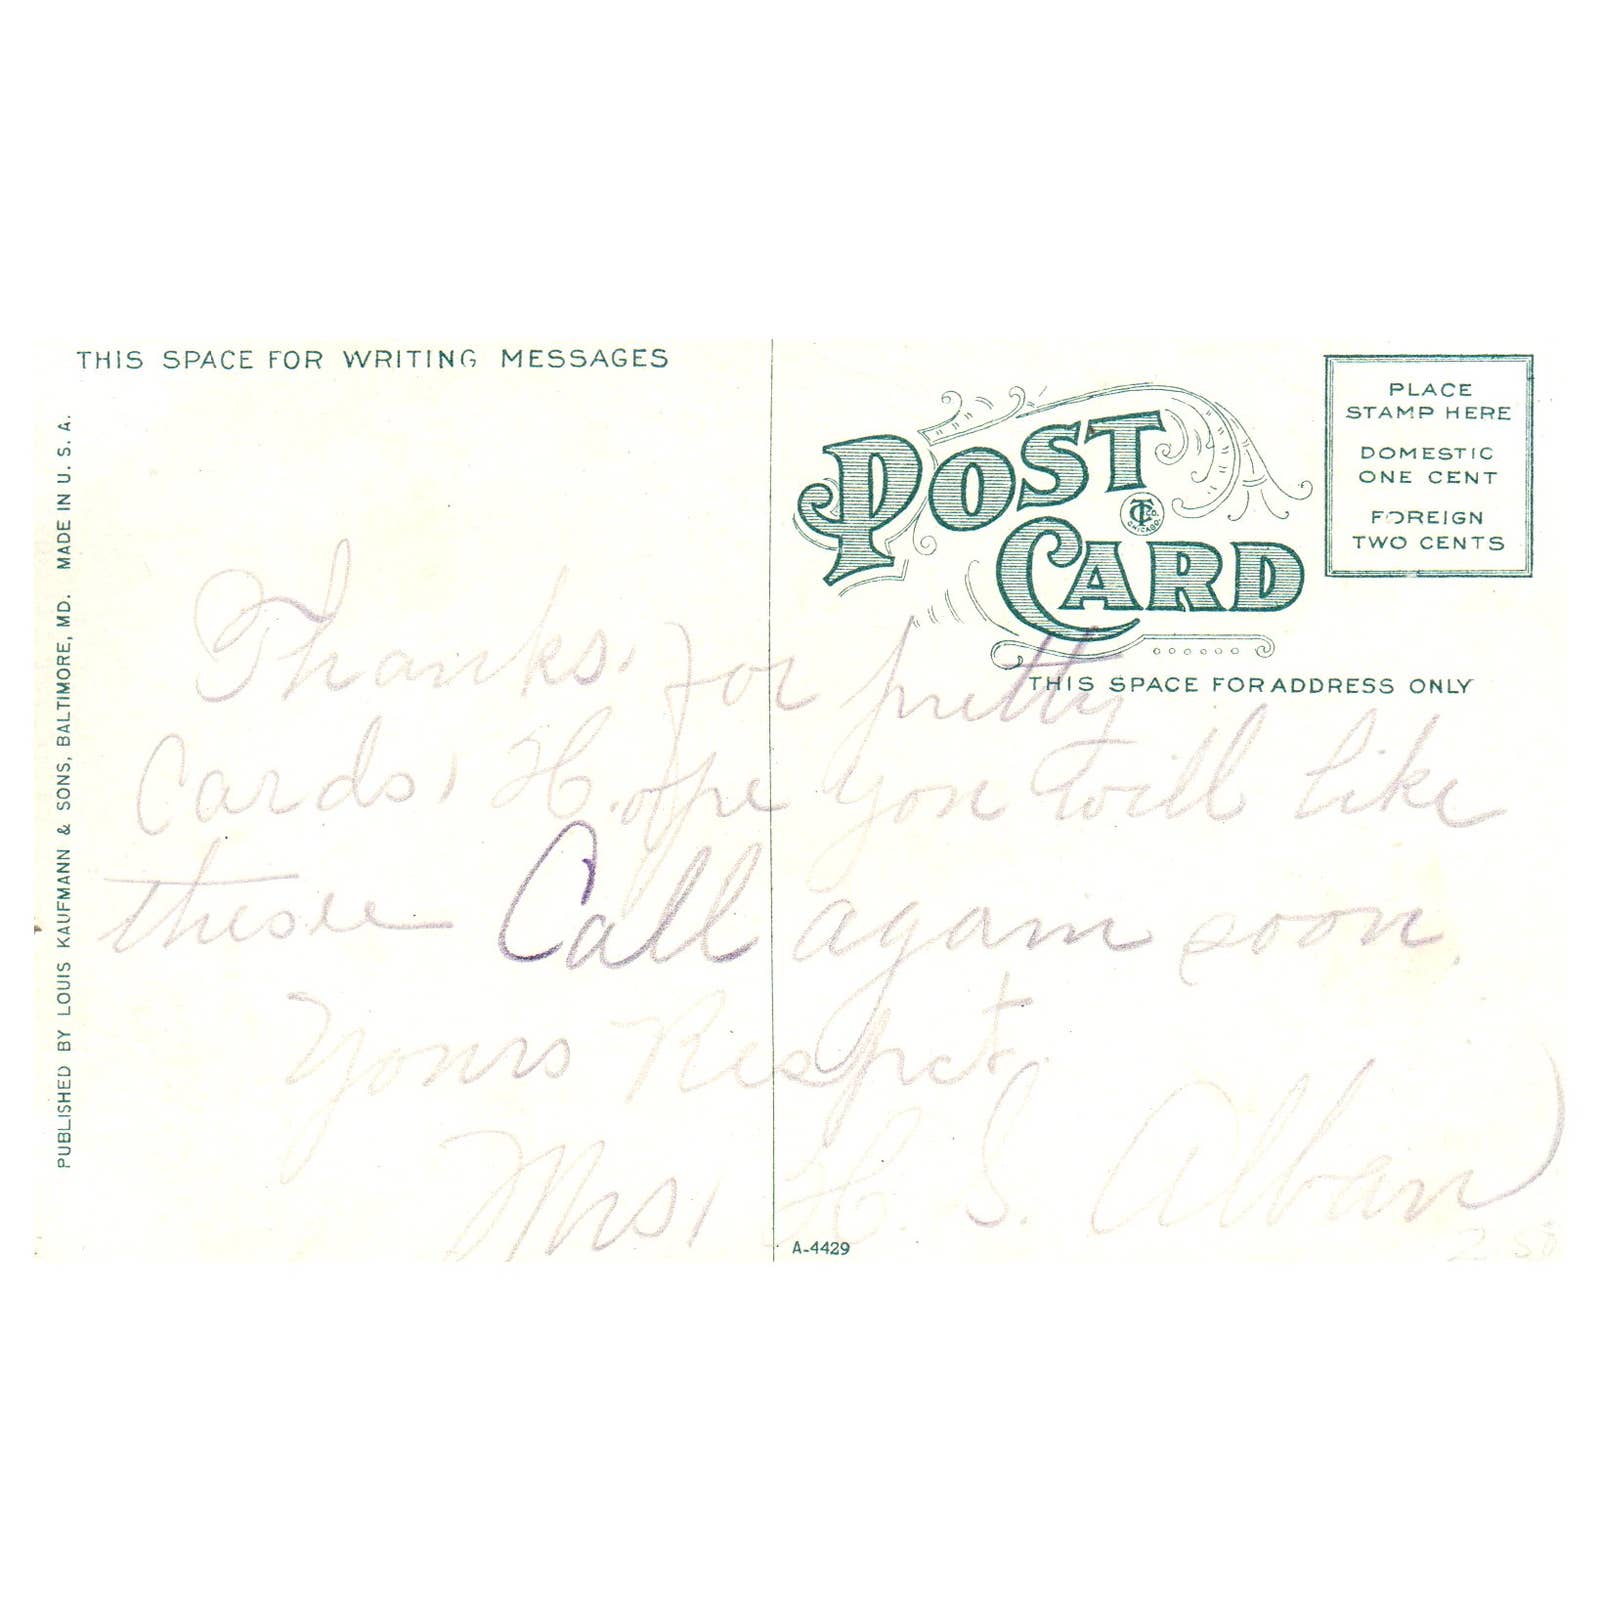 THIS SPACE FOR WRITING MESSAGES
PUBLISHED BY LOUIS KAUFMANN & SONS, BALTIMORE, MD. MADE IN U. S. A.
POST
CARD
TC
CO.
CHICAGO
PLACE
STAMP HERE
DOMESTIC
ONE CENT
FOREIGN
TWO CENTS
THIS SPACE FOR ADDRESS ONLY
Thanks, for pretty
Cards, Hope you will like
these Call again soon.
Yours Respct.
Mrs, H. S. Alban
A-4429
2 50